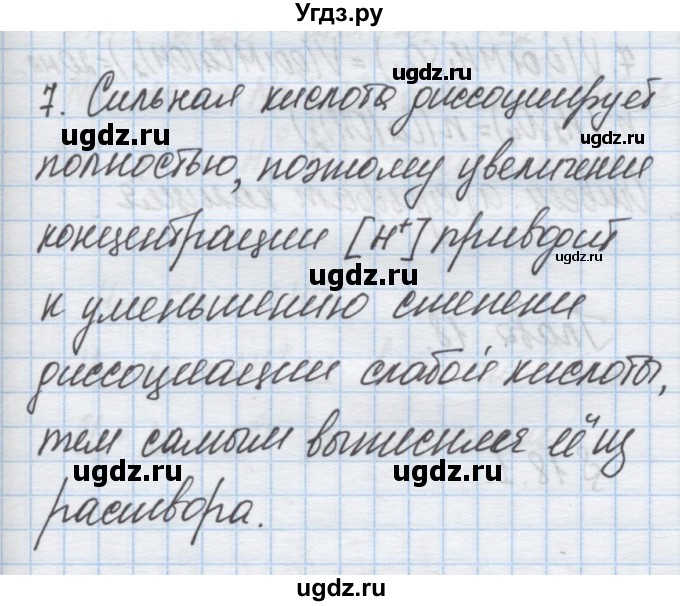 Угдз.ру
7. Сильная кислота диссоциирует
ugdz.ru
ugdz.ru
полностью, поэтому увеличение
концентрации [H⁺] приводит
ugdz.ru
к уменьшению степени
диссоциации слабой кислоты,
тем самым вытесняя её из
ugdz.ru
ugdz.ru
раствора.
ugdz.ru